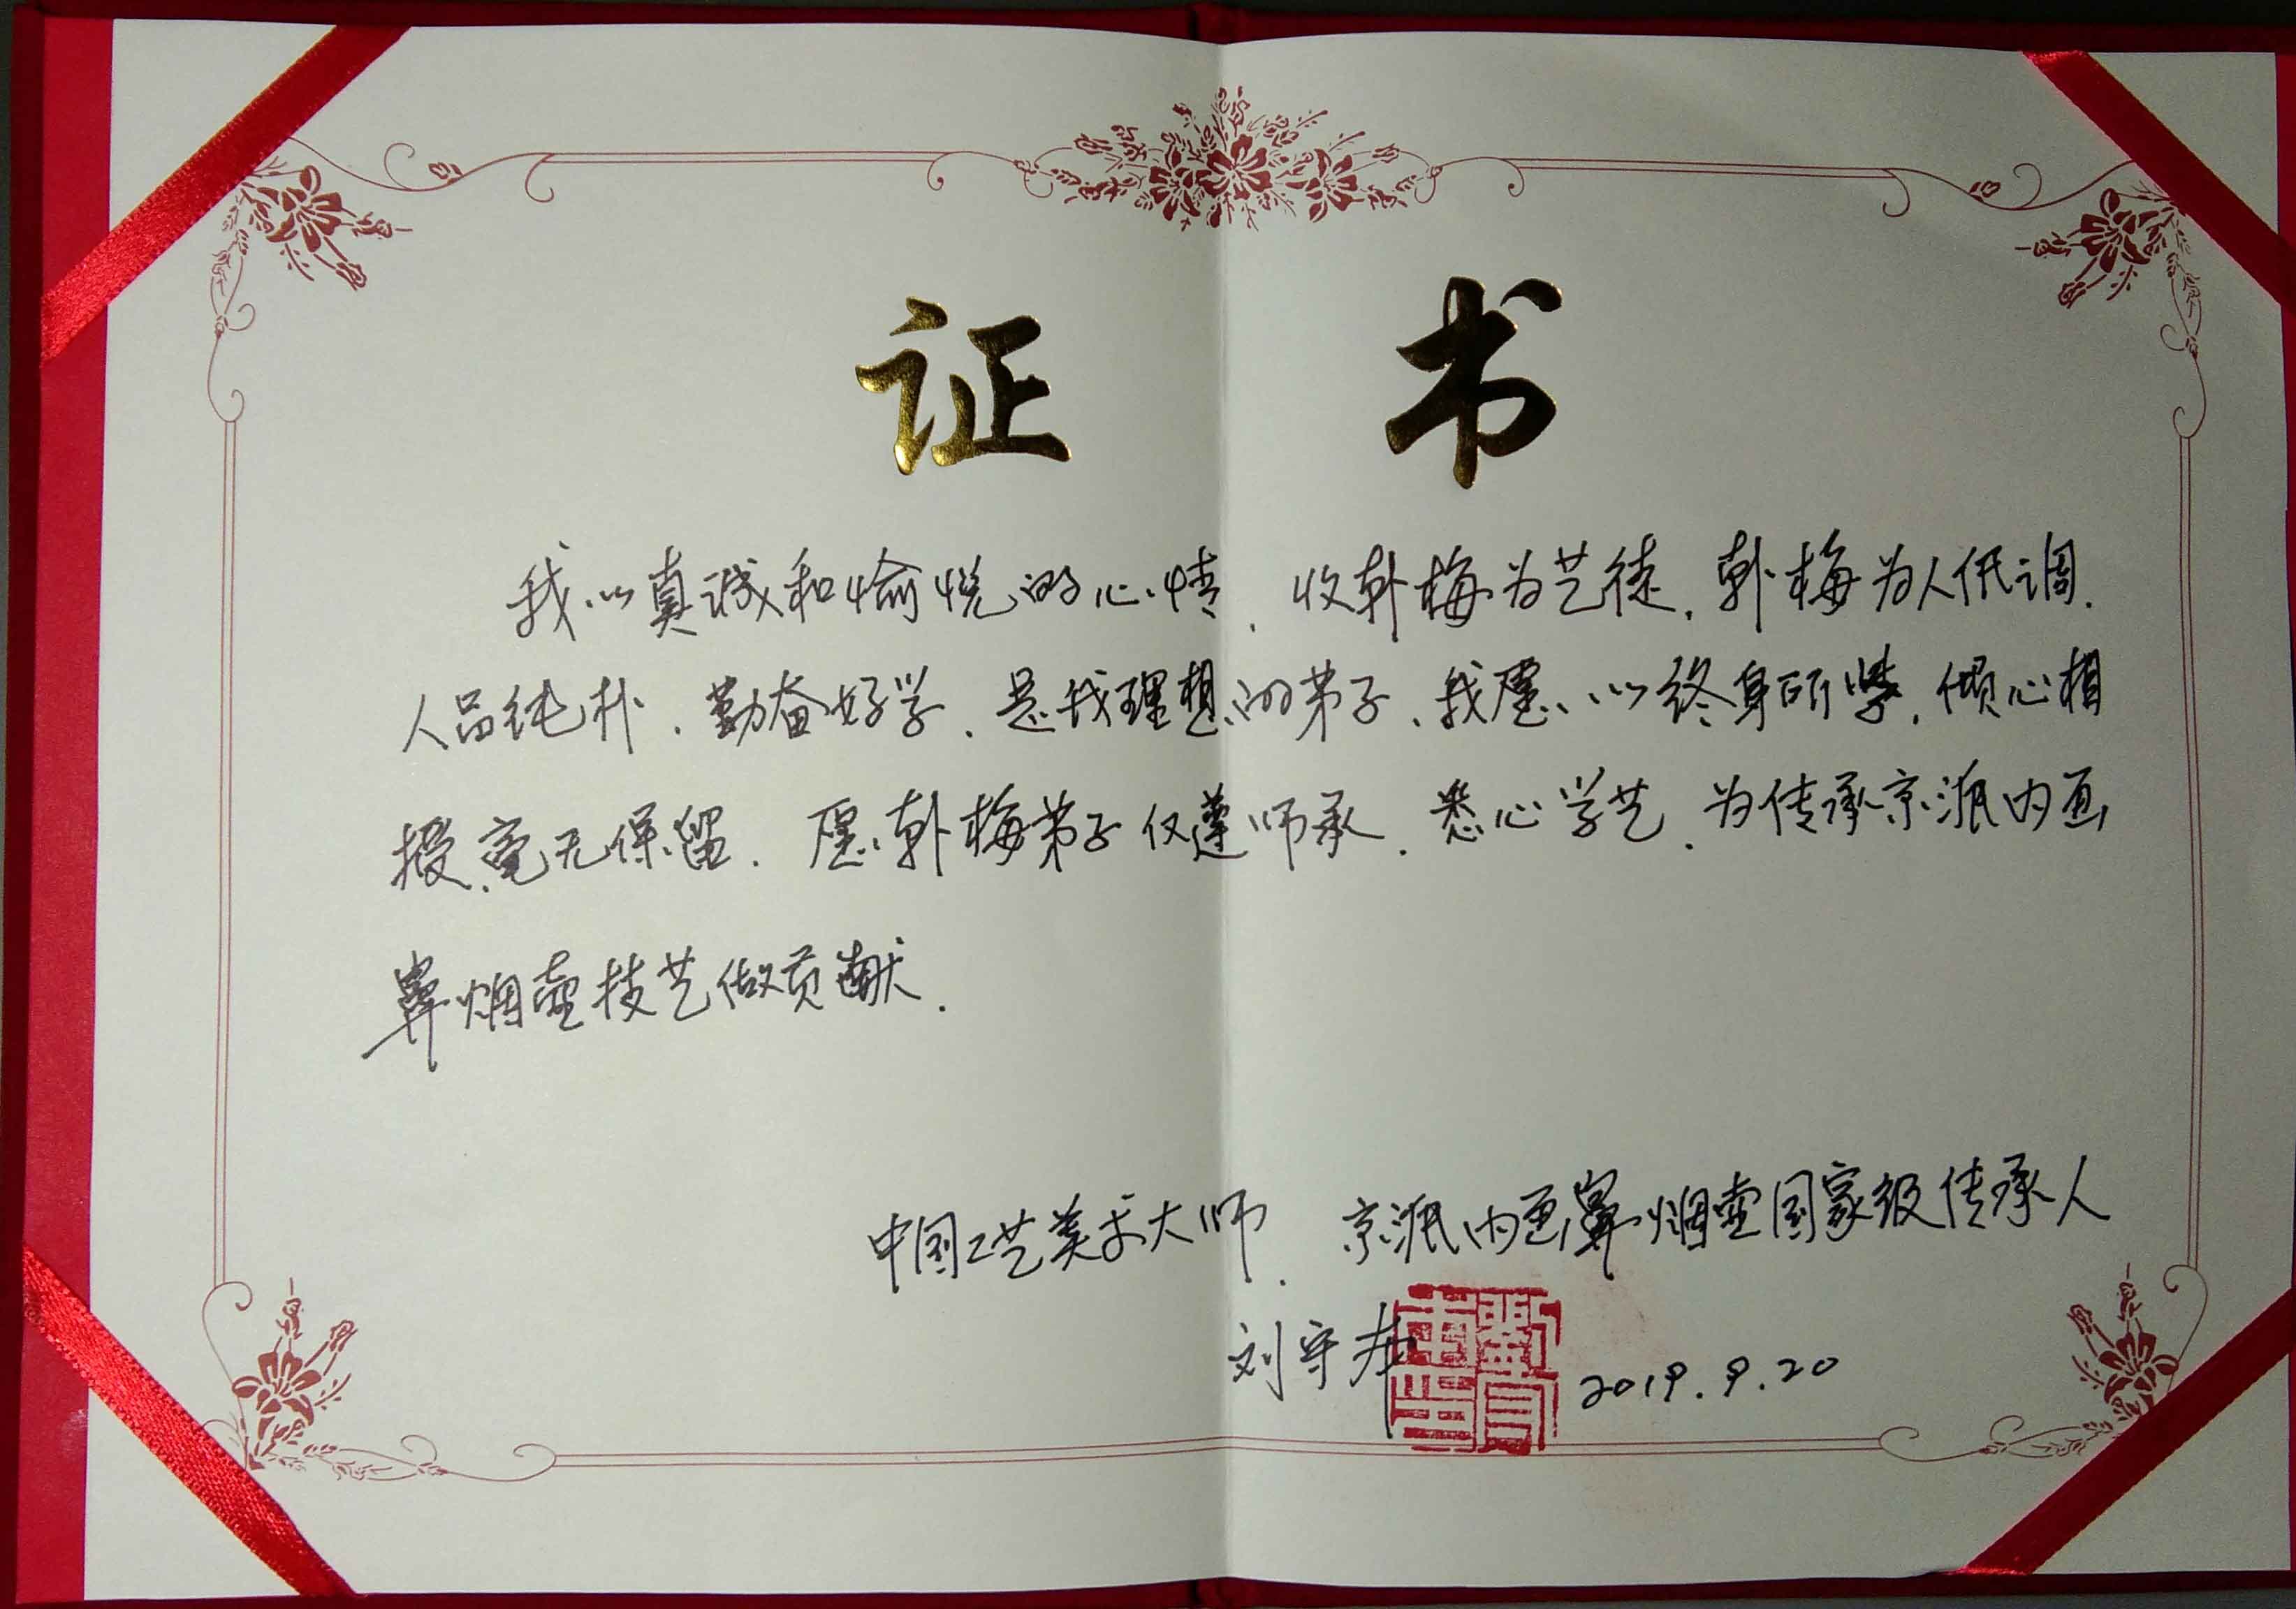 证书
我以真诚和愉悦的心情、收韩梅为艺徒，韩梅为人低调、
人品纯朴、勤奋好学、是我理想的弟子、我愿以终身所学，倾心相
授、毫无保留、愿韩梅弟子仅遵师承、悉心学艺、为传承京派内画
鼻烟壶技艺做贡献．
中国工艺美术大师、京派内画鼻烟壶国家级传承人
刘守本 2019.9.20